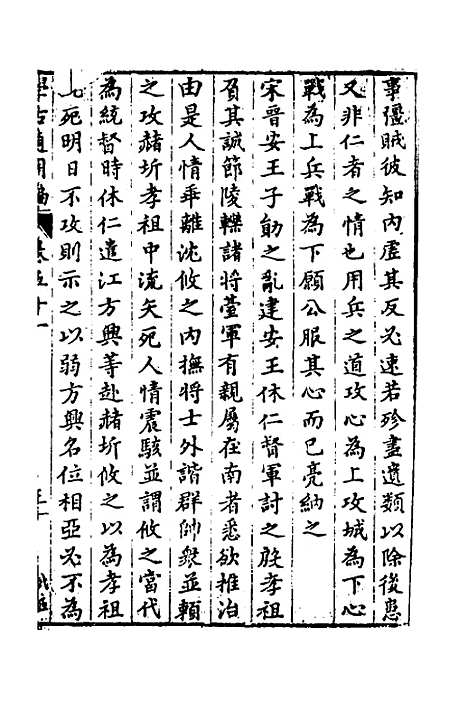 事彊賊彼知內虛其反必速若殄盡遺類以除後患
又非仁者之情也用兵之道攻心為上攻城為下心
戰為上兵戰為下願公服其心而已亮納之
宋晉安王子勛之亂建安王休仁督軍討之殷孝祖
負其誠節陵轢諸將臺軍有親屬在南者悉欲推治
由是人情乖離沈攸之內撫將士外諧群帥衆並賴
之攻赭圻孝祖中流矢死人情震駭並謂攸之當代
為統督時休仁遣江方興等赴赭圻攸之以為孝祖
死明日不攻則示之以弱方興名位相亞必不為
學古適用編
卷五十一